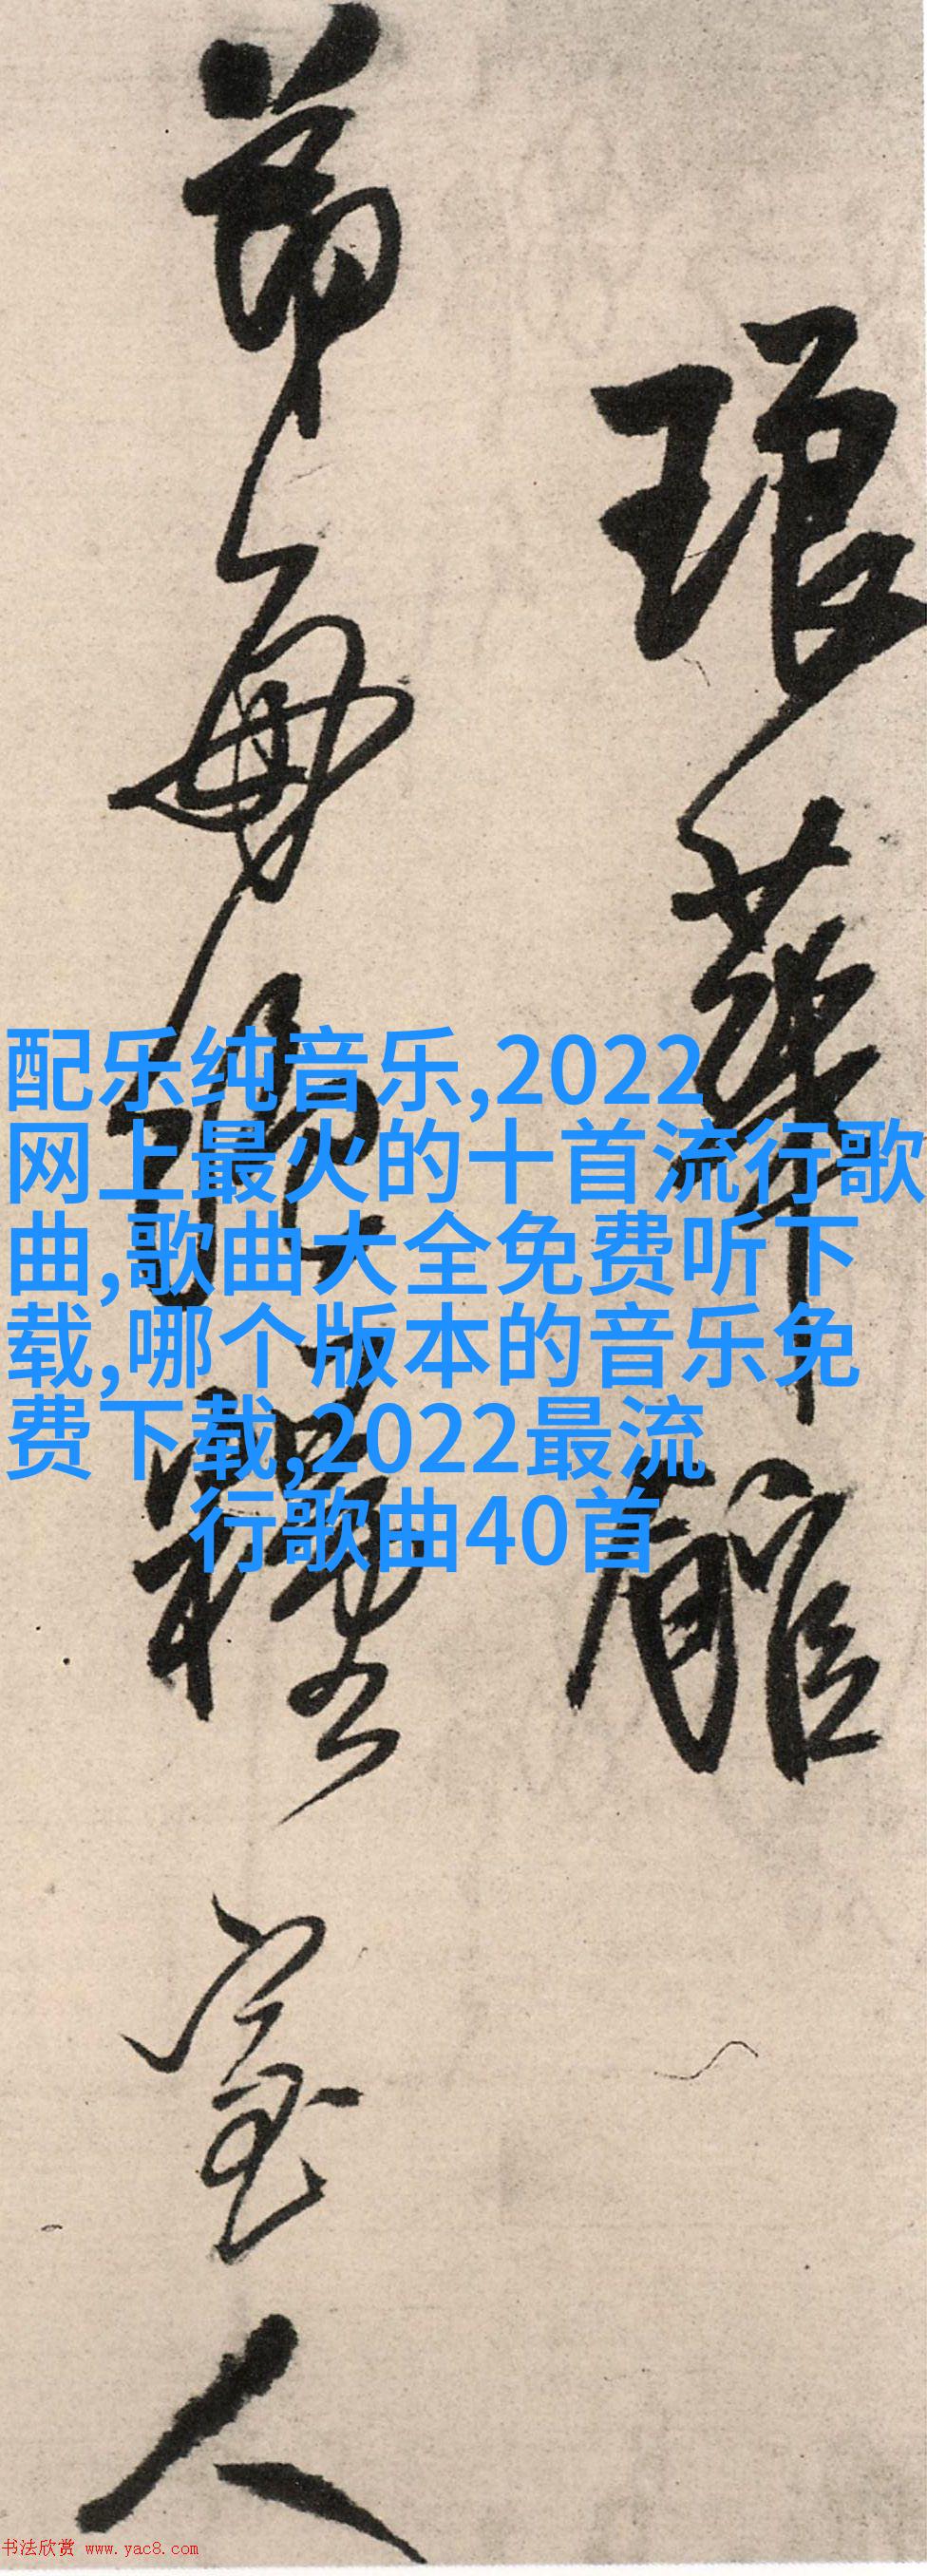 琅華館
配乐纯音乐,2022
网上最火的十首流行歌
曲,歌曲大全免费听下
载,哪个版本的音乐免
费下载,2022最流
行歌曲40首
人
书法欣赏 www.yac8.com